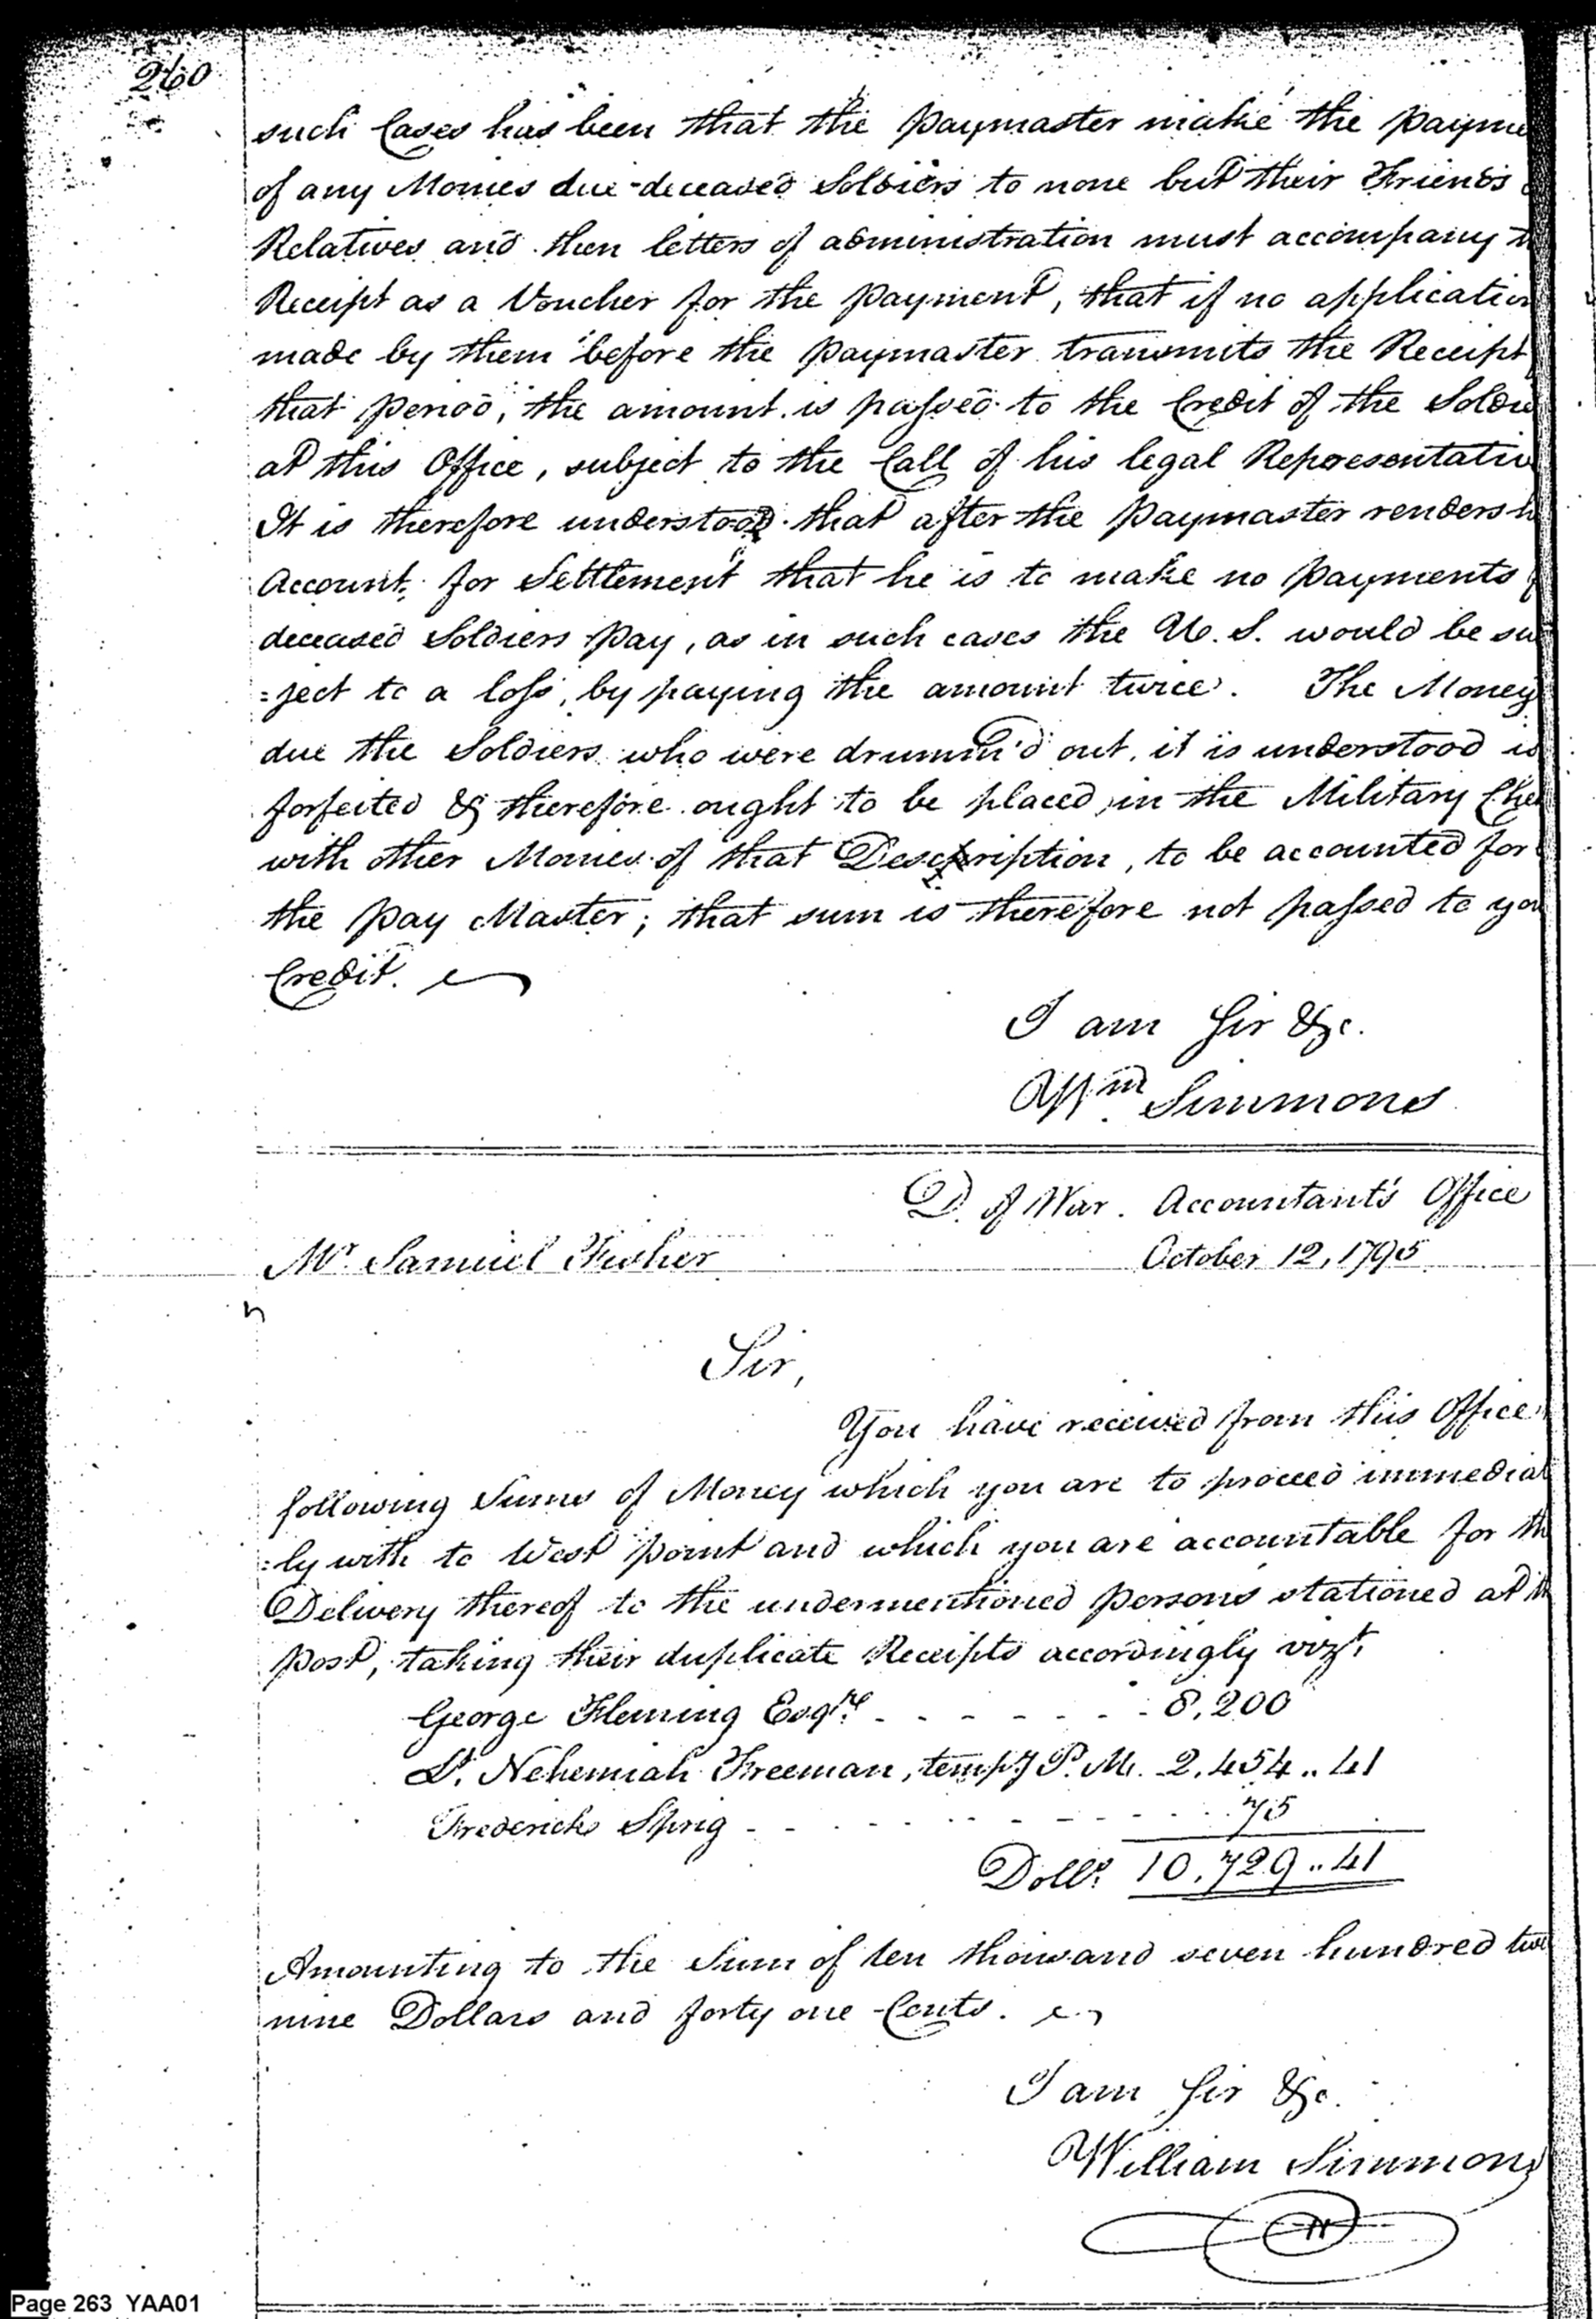 260
such Cases has been that the Paymaster make the payme
of any Monies due deceased Soldiers to none but their Friends
Relatives and then letters of administration must accompany
Receipt as a Voucher for the payment, that if no application
made by them before the Paymaster transmits the Receipt
that period, the amount is passed to the Credit of the Soldie
at this Office, subject to the Call of his legal Representativ
It is therefore understood that after the Paymaster renders h
Account for Settlement that he is to make no payments
deceased Soldiers Pay, as in such cases the U. S. would be su
=ject to a loss, by paying the amount twice. The Money
due the Soldiers who were drumm'd out, it is understood is
forfeited & therefore ought to be placed in the Military Che
with other Monies of that Description, to be accounted for
the Pay Master; that sum is therefore not passed to you
Credit.
I am Sir &c.
Wm Simmons
D. of War. Accountant's Office
Mr. Samuel Fisher October 12, 1795
Sir,
You have received from this Office
following Sums of Money which you are to proceed immediat
=ly with to West Point and which you are accountable for th
Delivery thereof to the undermentioned Persons stationed at th
Post, taking their duplicate Receipts accordingly vizt.
George Fleming Esqre. - - - - - - - 8,200
Lt. Nehemiah Freeman, tempy P. M. 2,454..41
Frederick Sprig - - - - - - - - - - 75
Dolls. 10,729..41
Amounting to the Sum of ten thousand seven hundred twe
nine Dollars and forty one Cents.
I am Sir &c.
William Simmons
Page 263 YAA01